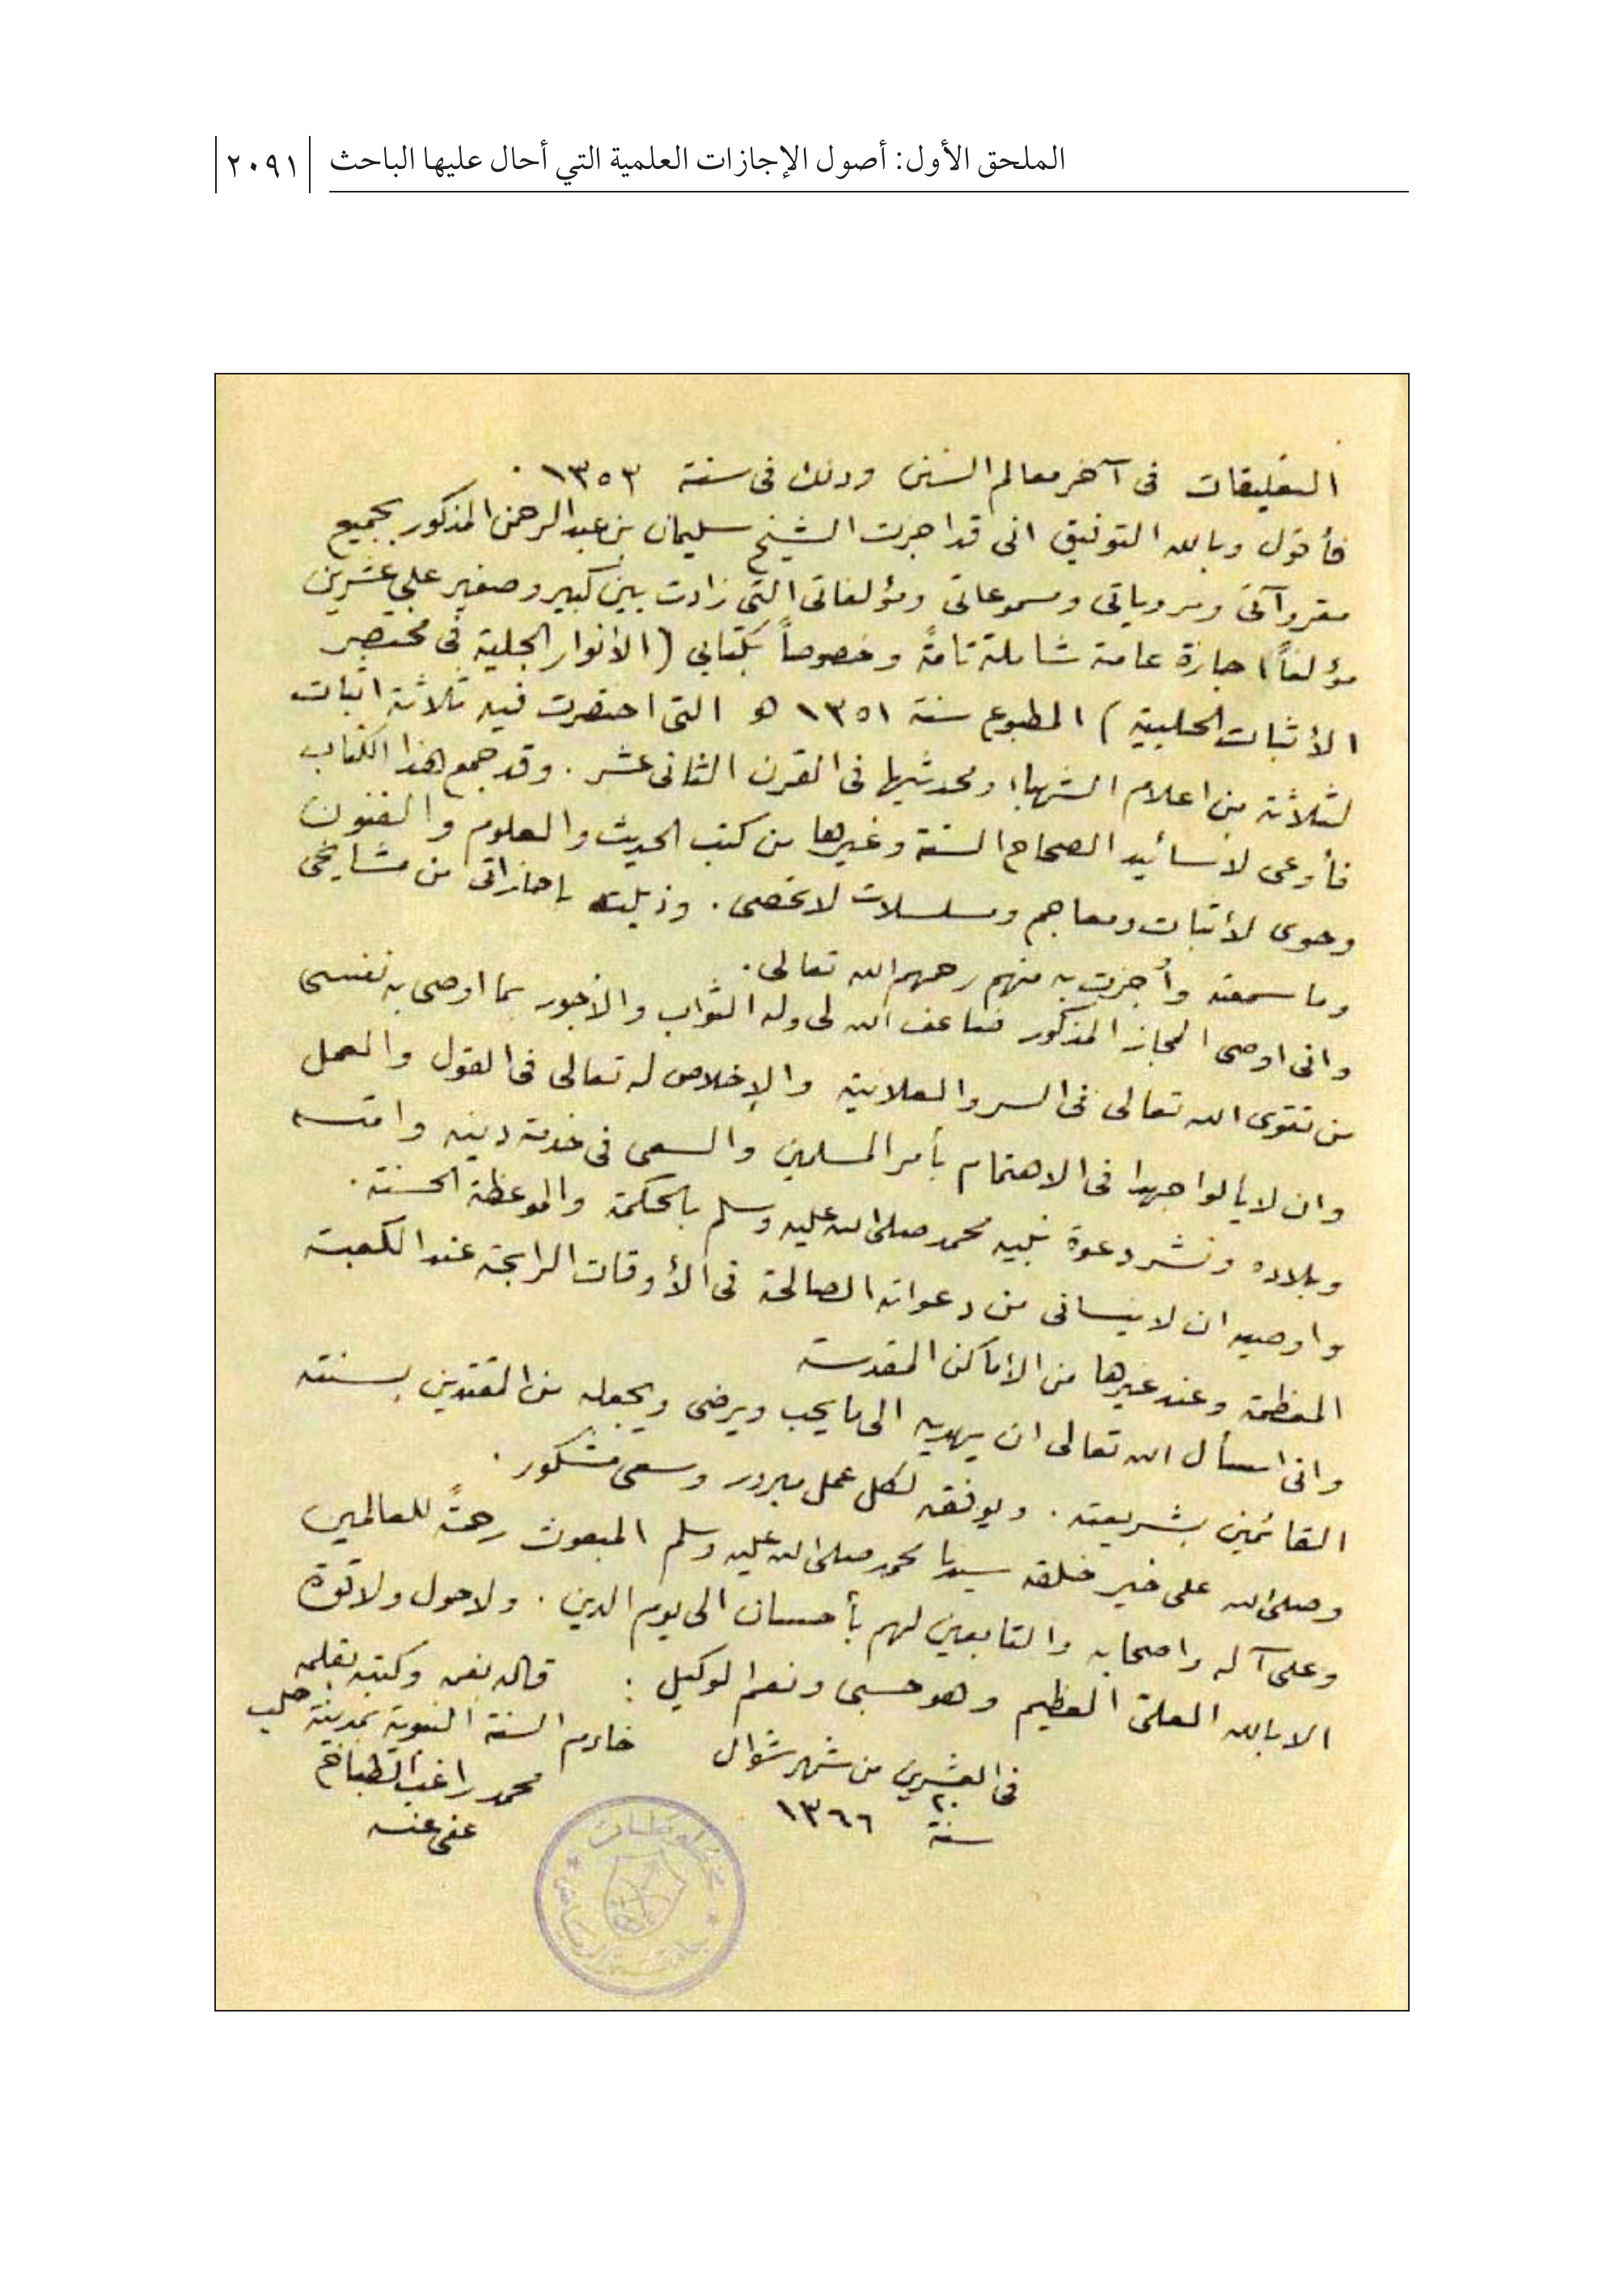 الملحق الأول: أصول الإجازات العلمية التي أحال عليها الباحث
٢٠٩١
التعليقات فى آخر معالم السنن وذلك فى سنة ١٣٥٣ .
فأقول وبالله التوفيق انى قد اجزت الشيخ سليمان بن عبد الرحمن المذكور بجميع
مقروآتى ومروياتى ومسموعاتى ومؤلفاتى التى زادت بين كبير وصغير على عشرين
مؤلفاً اجازة عامة شاملة تامة وخصوصاً بكتابي ( الأنوار الجلية فى مختصر
الأثبات الحلبية ) المطبوع سنة ١٣٥١ هـ التى اختصرت فيه ثلاثة اثبات
لثلاثة من اعلام الشهباء ومحدثيها فى القرن الثانى عشر . وقد جمع هذا الكتاب
فأوعى لأسانيد الصحاح الستة وغيرها من كتب الحديث والعلوم والفنون
وحوى لأثبات ومعاجم ومسلسلات لا تحصى . وذيلته باجازاتى من مشايخى
وما سمعته وأُجزت به منهم رحمهم الله تعالى .
وانى اوصى المجاز المذكور ضاعف الله لى وله الثواب والأجور بما اوصى به نفسى
من تقوى الله تعالى فى السر والعلانية والإخلاص له تعالى فى القول والعمل
وان لا يألوا جهدا فى الاهتمام بأمر المسلمين والسعى فى خدمة دينه وامته
وبلاده ونشر دعوة نبيه محمد صلى الله عليه وسلم بالحكمة والموعظة الحسنة .
واوصيه ان لا ينسانى من دعواته الصالحة فى الأوقات الرابحة عند الكعبة
المعظمة وعند غيرها من الاماكن المقدسة
وانى اسأل الله تعالى ان يهديه الى ما يحب ويرضى ويجعله من المقتدين بسنته
القائمين بشريعته . ويوفقه لكل عمل مبرور وسعى مشكور .
وصلى الله على خير خلقه سيدنا محمد صلى الله عليه وسلم المبعوث رحمةً للعالمين
وعلى آله واصحابه والتابعين لهم بأحسان الى يوم الدين . ولا حول ولا قوة
الا بالله العلى العظيم وهو حسبى ونعم الوكيل : قاله بفمه وكتبه بقلمه
فى العشرين من شهر شوال خادم السنة النبوية بمدينة حلب
٢٠
سنة ١٣٦٦ محمد راغب الطباخ
عفى عنه